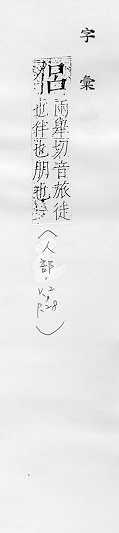 字彙
侶
兩舉切音旅徒
也伴也朋也
(人部,
V.2
P.28)